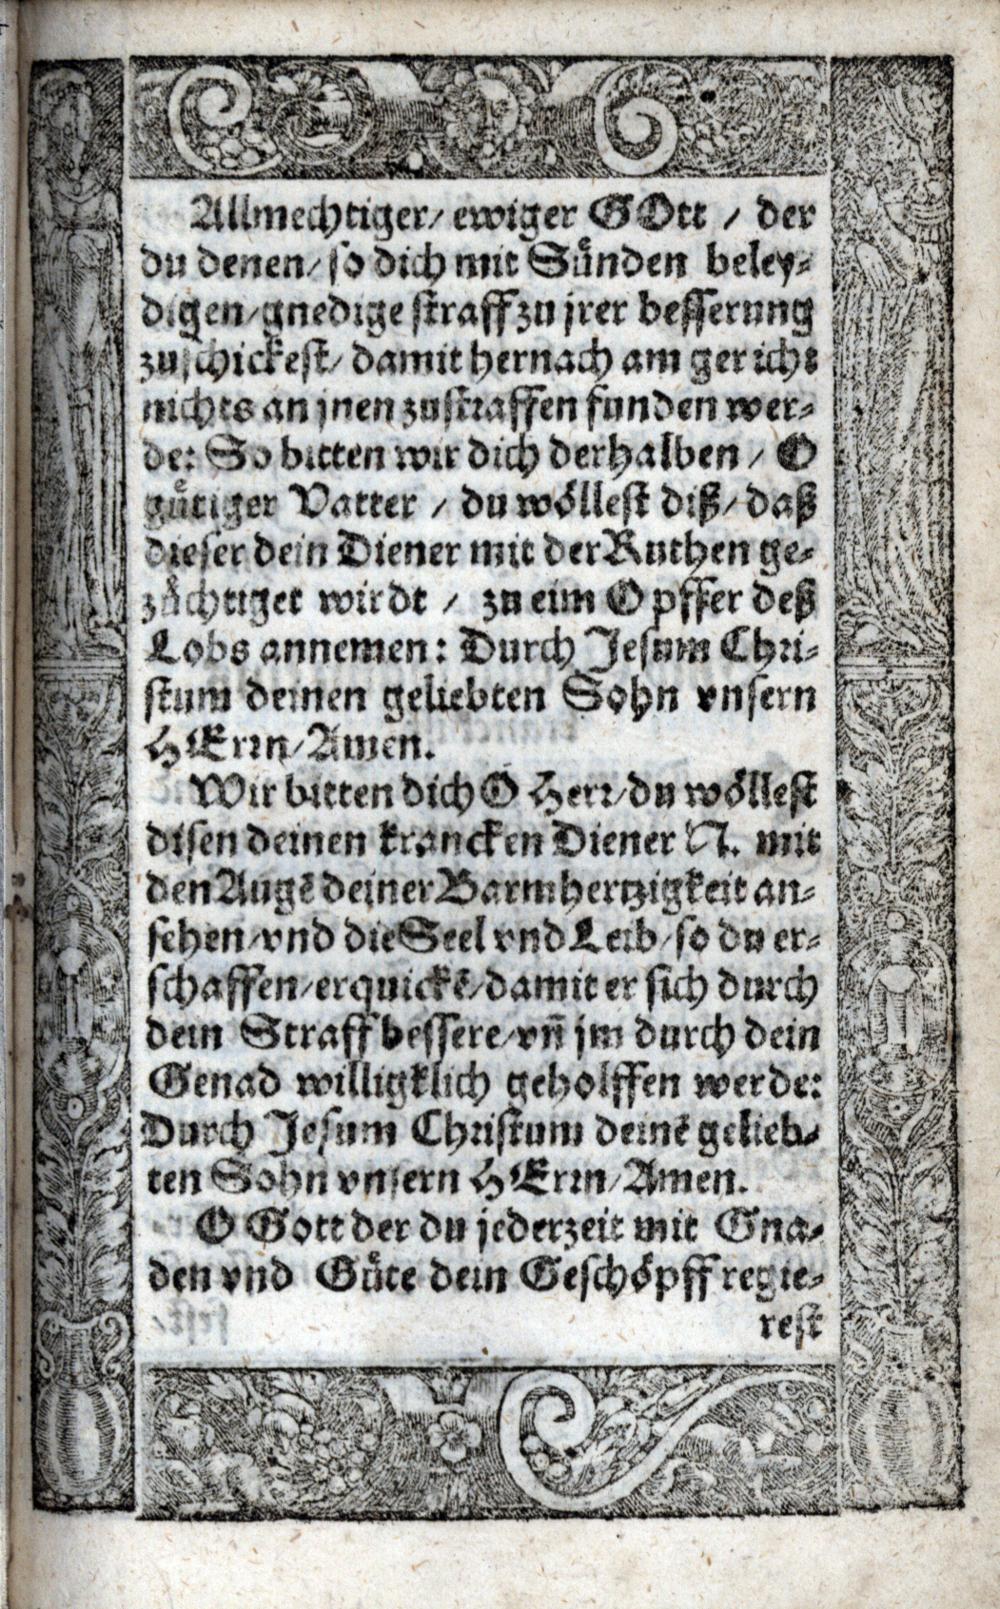 Allmechtiger/ ewiger GOtt / der
du denen/ so dich mit Sünden beley-
digen/ gnedige straff zu jrer besserung
zuschickest/ damit hernach am gericht
nichts an jnen zustraffen funden wer-
de: So bitten wir dich derhalben / O
gütiger Vatter / du wöllest diß/ daß
dieser dein Diener mit der Ruthen ge-
züchtiget wirdt / zu eim Opffer deß
Lobs annemen: Durch Jesum Chri-
stum deinen geliebten Sohn vnsern
HErrn/ Amen.
Wir bitten dich O Herr/ du wöllest
disen deinen krancken Diener N. mit
den Augē deiner Barmhertzigkeit an-
sehen/ vnd die Seel vnd Leib/ so du er-
schaffen/ erquickē/ damit er sich durch
dein Straff bessere/ vn̄ jm durch dein
Genad willigklich geholffen werde:
Durch Jesum Christum deinē gelieb-
ten Sohn vnsern HErrn/ Amen.
O Gott der du jederzeit mit Gna-
den vnd Güte dein Geschöpff regie-
rest